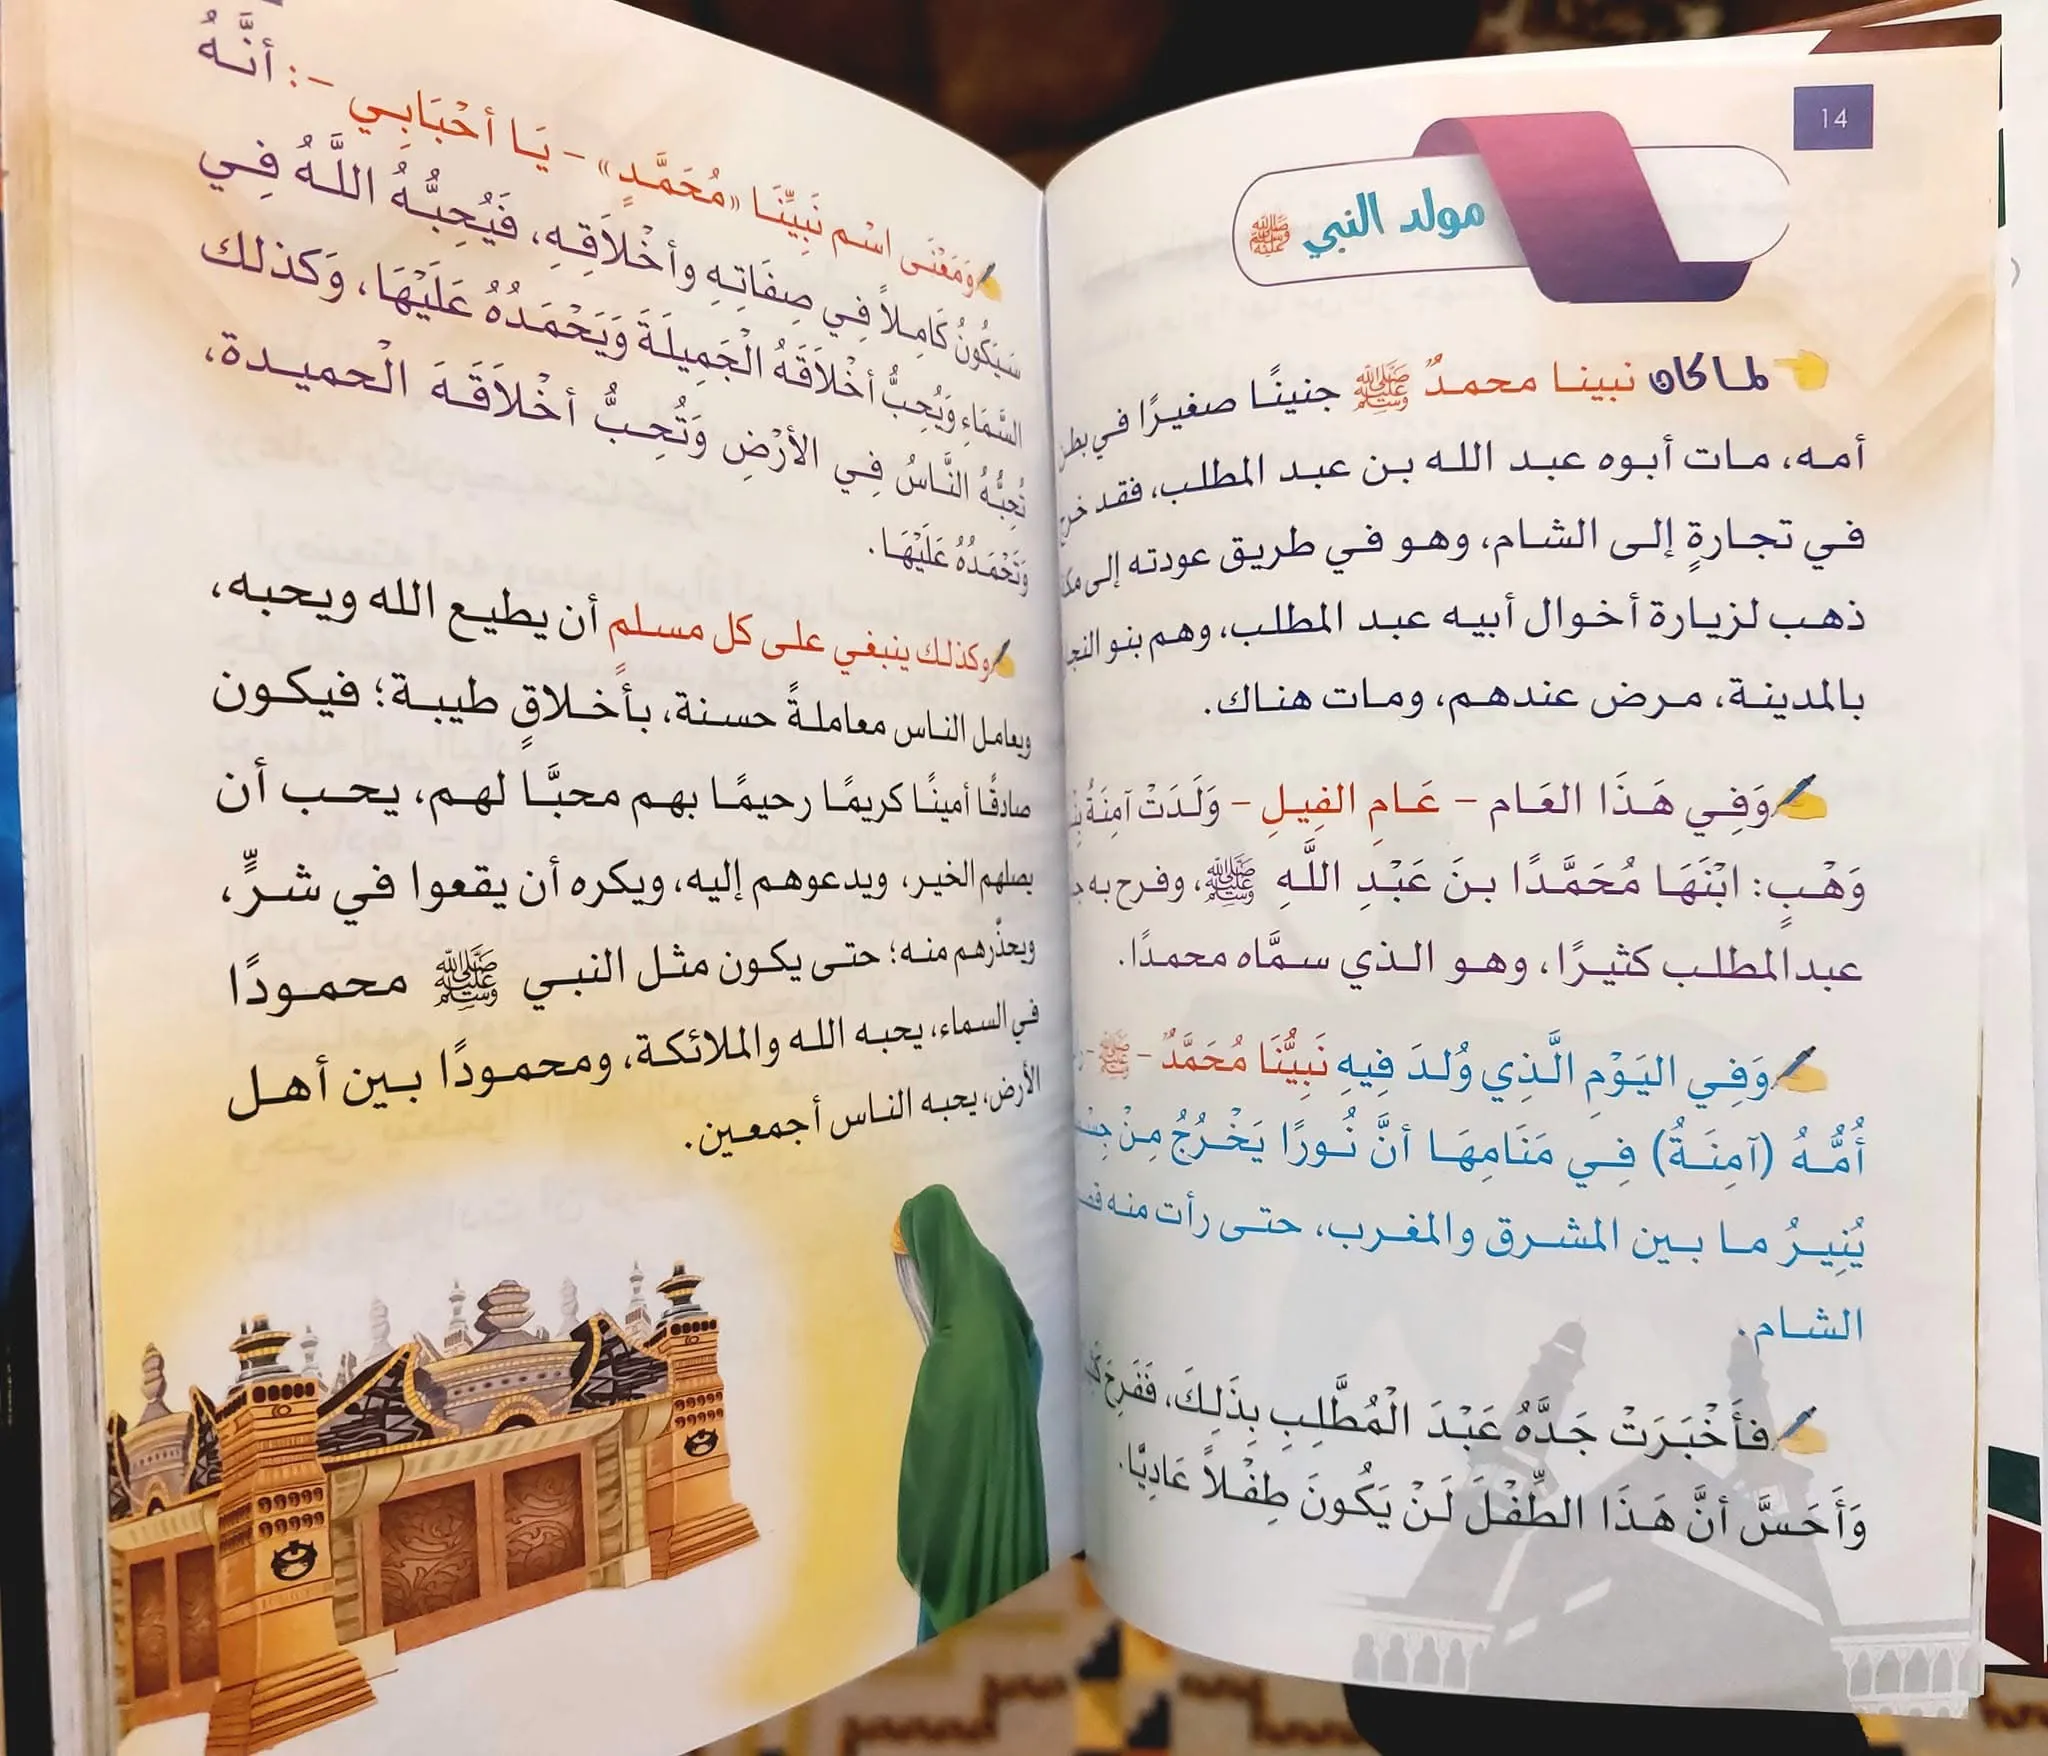 14
مولد النبي ﷺ
لما كان نبينا محمدٌ ﷺ جنينًا صغيرًا في بطن
أمه، مات أبوه عبد الله بن عبد المطلب، فقد خرج
في تجارةٍ إلى الشام، وهو في طريق عودته إلى
ذهب لزيارة أخوال أبيه عبد المطلب، وهم بنو
بالمدينة، مرض عندهم، ومات هناك.
وَفِي هَذَا العَام – عَامِ الفِيلِ – وَلَدَتْ آمِنَةُ
وَهْبٍ: ابْنَهَا مُحَمَّدًا بنَ عَبْدِ اللَّهِ ﷺ، وفرح به
عبدالمطلب كثيرًا، وهو الذي سمَّاه محمدًا.
وَفِي اليَوْمِ الَّذِي وُلدَ فِيهِ نَبِيُّنَا مُحَمَّدٌ – ﷺ –
أُمُّهُ (آمِنَةُ) فِي مَنَامِهَا أنَّ نُورًا يَخْرُجُ مِنْ
يُنِيرُ ما بين المشرق والمغرب، حتى رأت منه
الشام.
فأَخْبَرَتْ جَدَّهُ عَبْدَ الْمُطَّلِبِ بِذَلِكَ، فَفَرِحَ
وَأَحَسَّ أنَّ هَذَا الطِّفْلَ لَنْ يَكُونَ طِفْلاً عَادِيًّا.
وَمَعْنَى اسْم نَبِيِّنَا «مُحَمَّدٍ» – يَا أحْبَابِي –: أنَّهُ
سَيَكُونُ كَامِلاً فِي صِفَاتِهِ وأخْلاَقِهِ، فَيُحِبُّهُ اللَّهُ فِي
السَّمَاءِ وَيُحِبُّ أخْلاَقَهُ الْجَمِيلَةَ وَيَحْمَدُهُ عَلَيْهَا، وَكَذلك
تُحِبُّهُ النَّاسُ فِي الأَرْضِ وَتُحِبُّ أخْلاَقَهَ الْحميدة،
وَتَحْمَدُهُ عَلَيْهَا.
وكذلك ينبغي على كل مسلم أن يطيع الله ويحبه،
ويعامل الناس معاملةً حسنة، بأخلاقٍ طيبة؛ فيكون
صادقًا أمينًا كريمًا رحيمًا بهم محبًّا لهم، يحب أن
يصلهم الخير، ويدعوهم إليه، ويكره أن يقعوا في شرٍّ،
ويحذّرهم منه؛ حتى يكون مثل النبي ﷺ محمودًا
في السماء، يحبه الله والملائكة، ومحمودًا بين أهل
الأرض، يحبه الناس أجمعين.